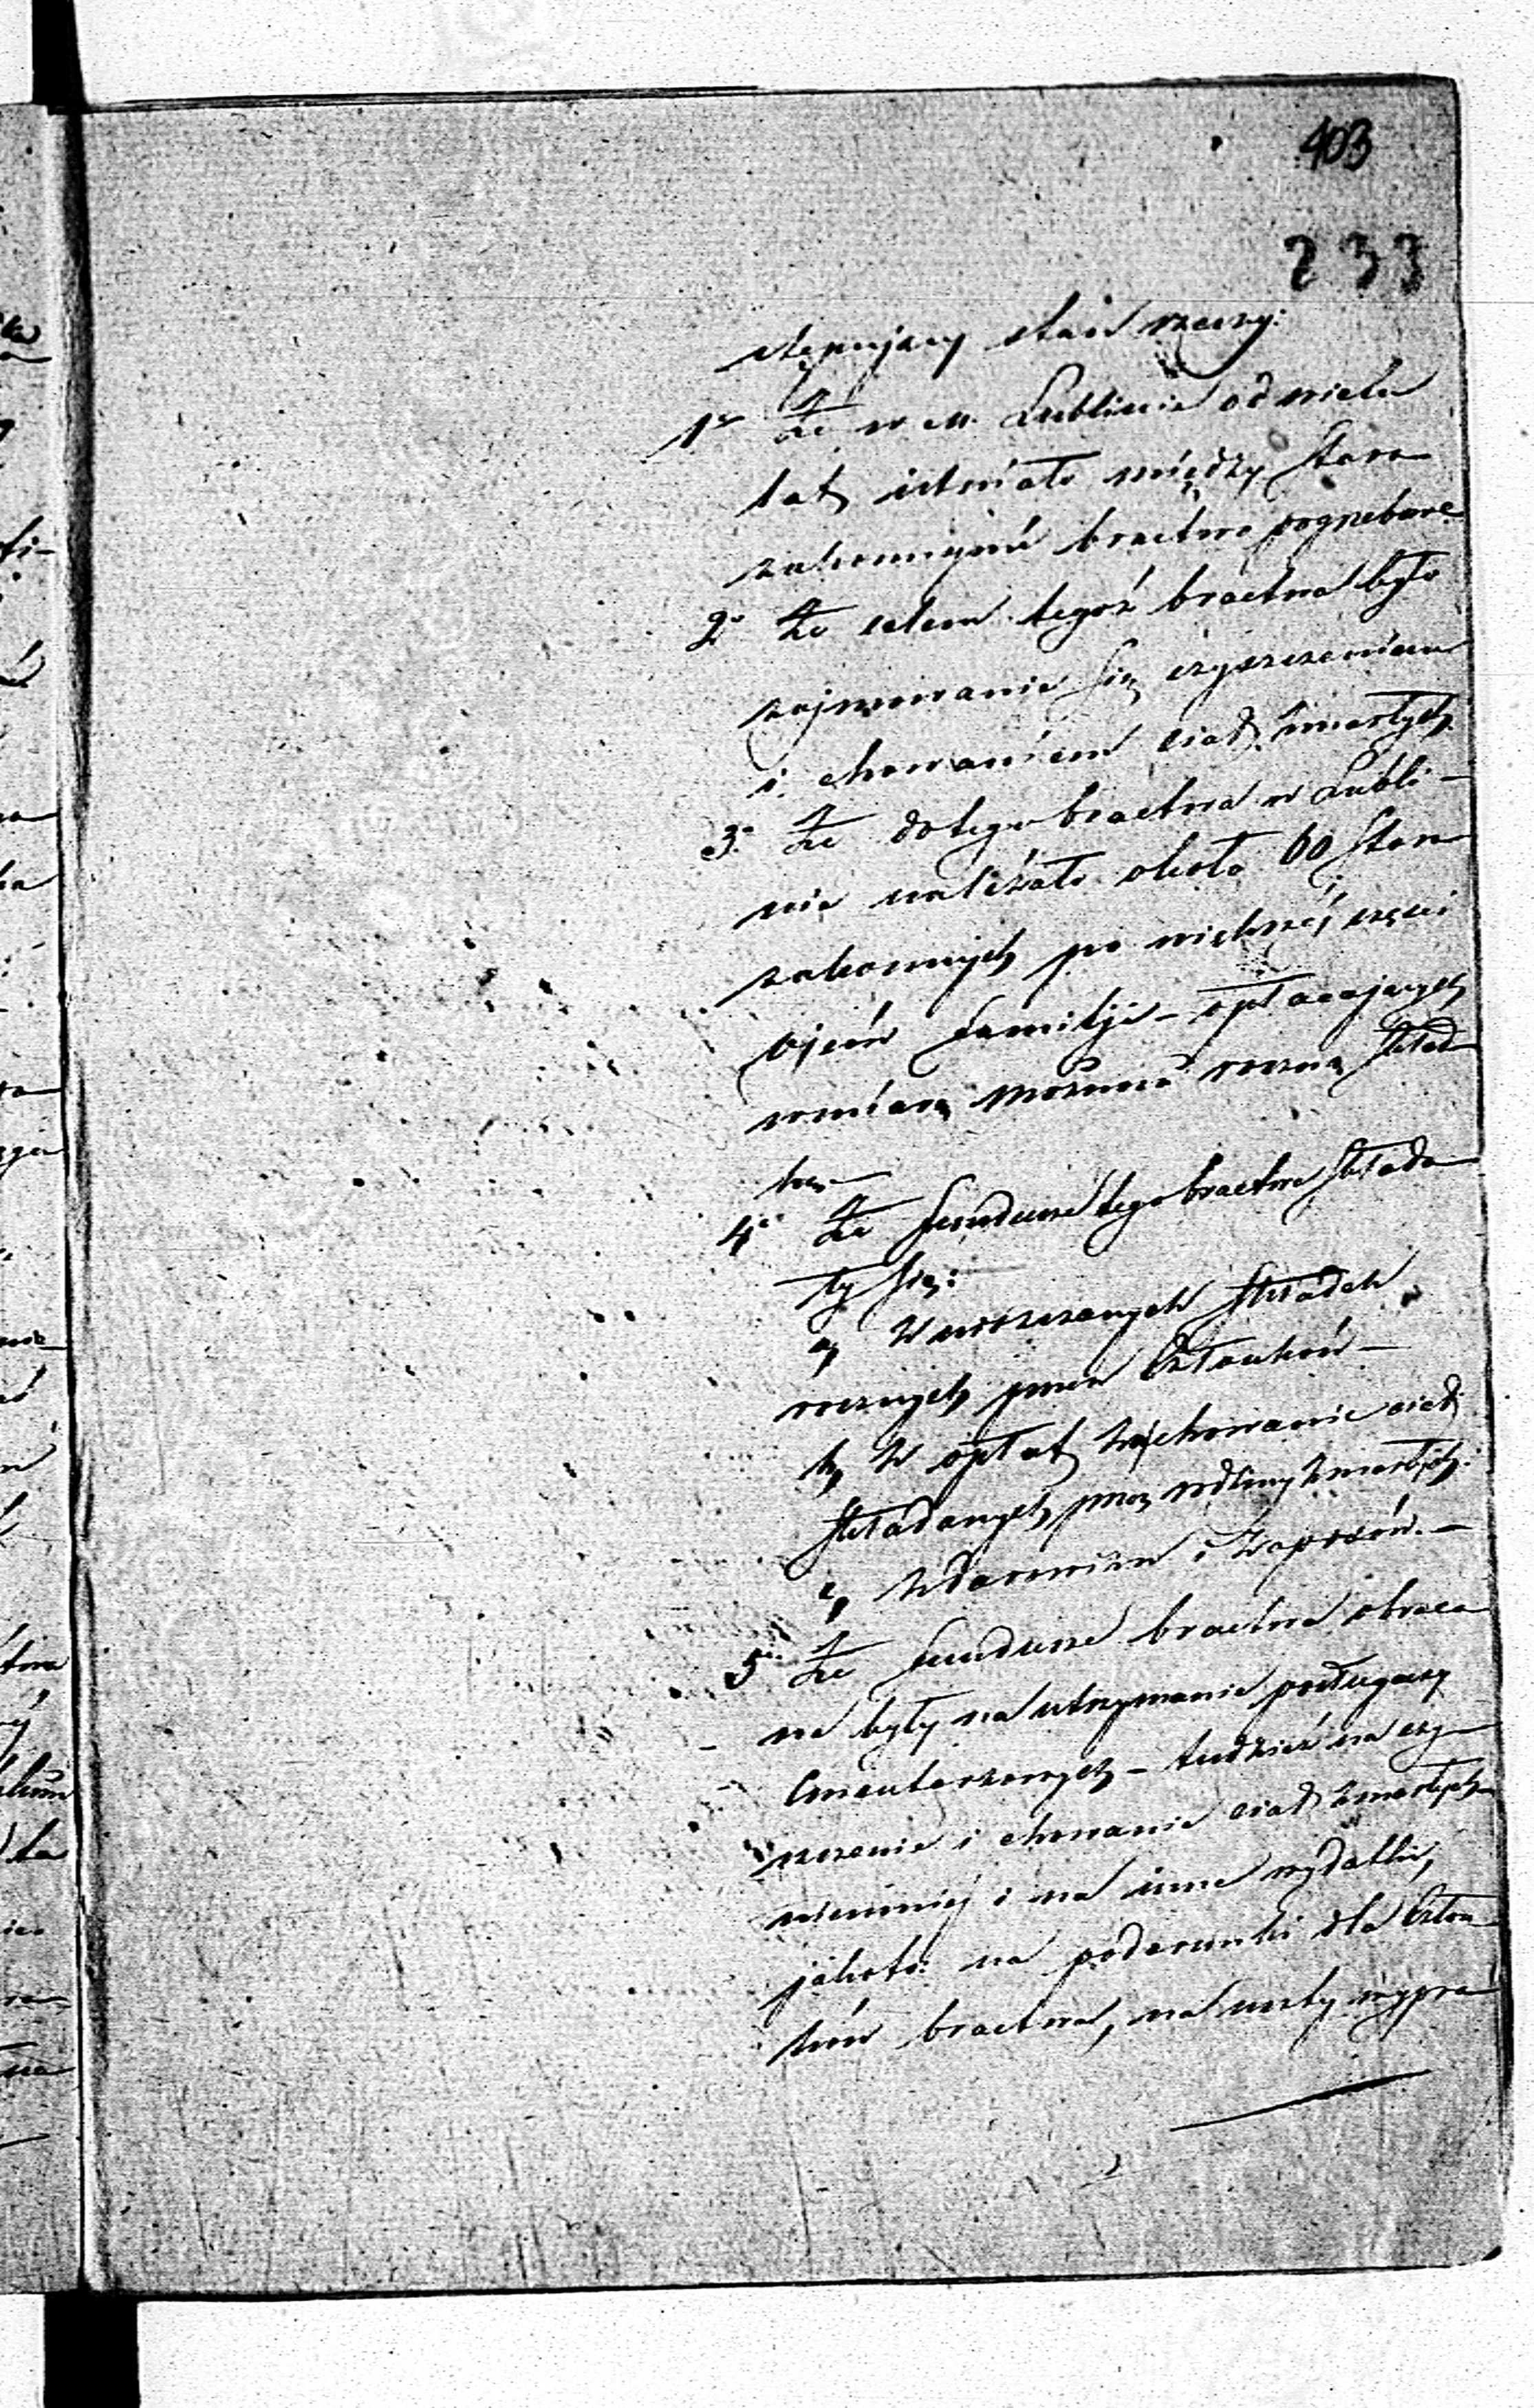 403
233
stępujący stan rzeczy:
1e Że w m. Lublinie od wielu
lat istniało między Staro
zakonnymi bractwo pogrzebowe
2e Że celem tegoż bractwa było
zajmowanie się czyszczeniem
i chowaniem ciał zmarłych.
3e Że do tego bractwa w Lubli-
nie należało około 60 Staro
zakonnych po większéj części
ojców familji – opłacających
w miarę możności roczną skład
kę. –
4e Że fundusze tego bractwa składa
ły się:
a, z wnoszonych składek
rocznych przez Członków –
b, z opłat za chowanie ciał
składanych przez rodziny zmarłych.
c, z darowizn i zapisów. –
5e Że fundusze bractwa obraca
ne były na utrzymanie posługaczy
Cmentarzowych – tudzież na czy-
szczenie i chowanie ciał zmarłych
niemniéj i na inne wydatki,
jakoto: na podarunki dla Człon
ków bractwa, na uczty wypra